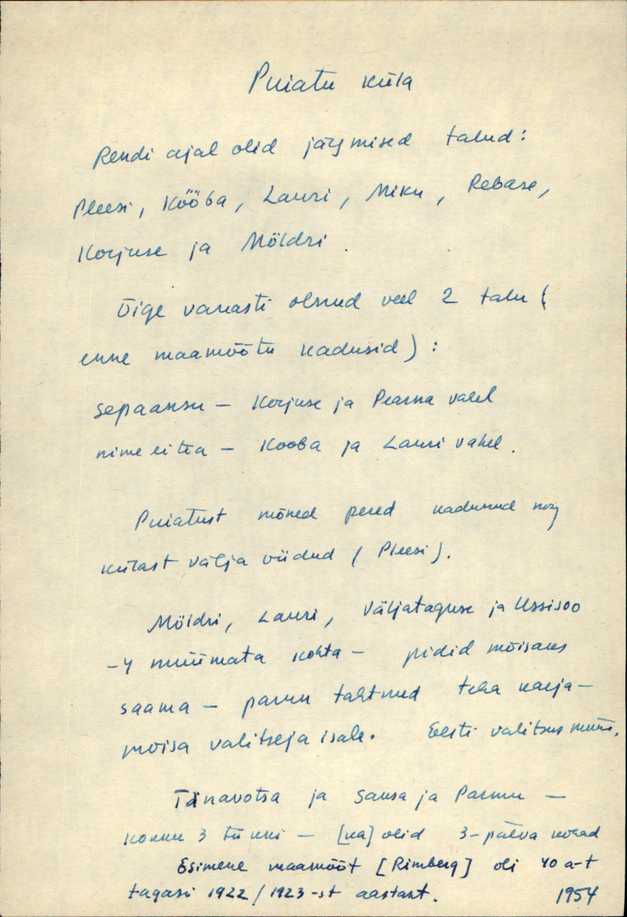 Puiatu küla
Rendi ajal olid järgmised talud:
Pleesi, Kõõba, Lauri, Miku, Rebase,
Korjuse ja Möldri.
Õige vanasti olnud veel 2 talu (
enne maamõõtu kadusid):
Sepaansu - Korjuse ja Pearna vahel
nime ei tea - Kooba ja Lauri vahel.
Puiatust mõned pered kadunud
külast välja viidud (Pleesi).
Möldri, Lauri, Väljataguse ja Ussisoo
-4 müümata kohta - pidid mõisaks
saama - parun tahtnud teha karja-
mõisa valitseja isale. Eesti valitsus müüs.
Tänavotsa ja Sausa ja Parmu -
3 - [ka] olid 3-päeva
Esimene maamõõt [Rimberg] oli 40 a-t
tagasi 1922/1923-st aastast. 1954